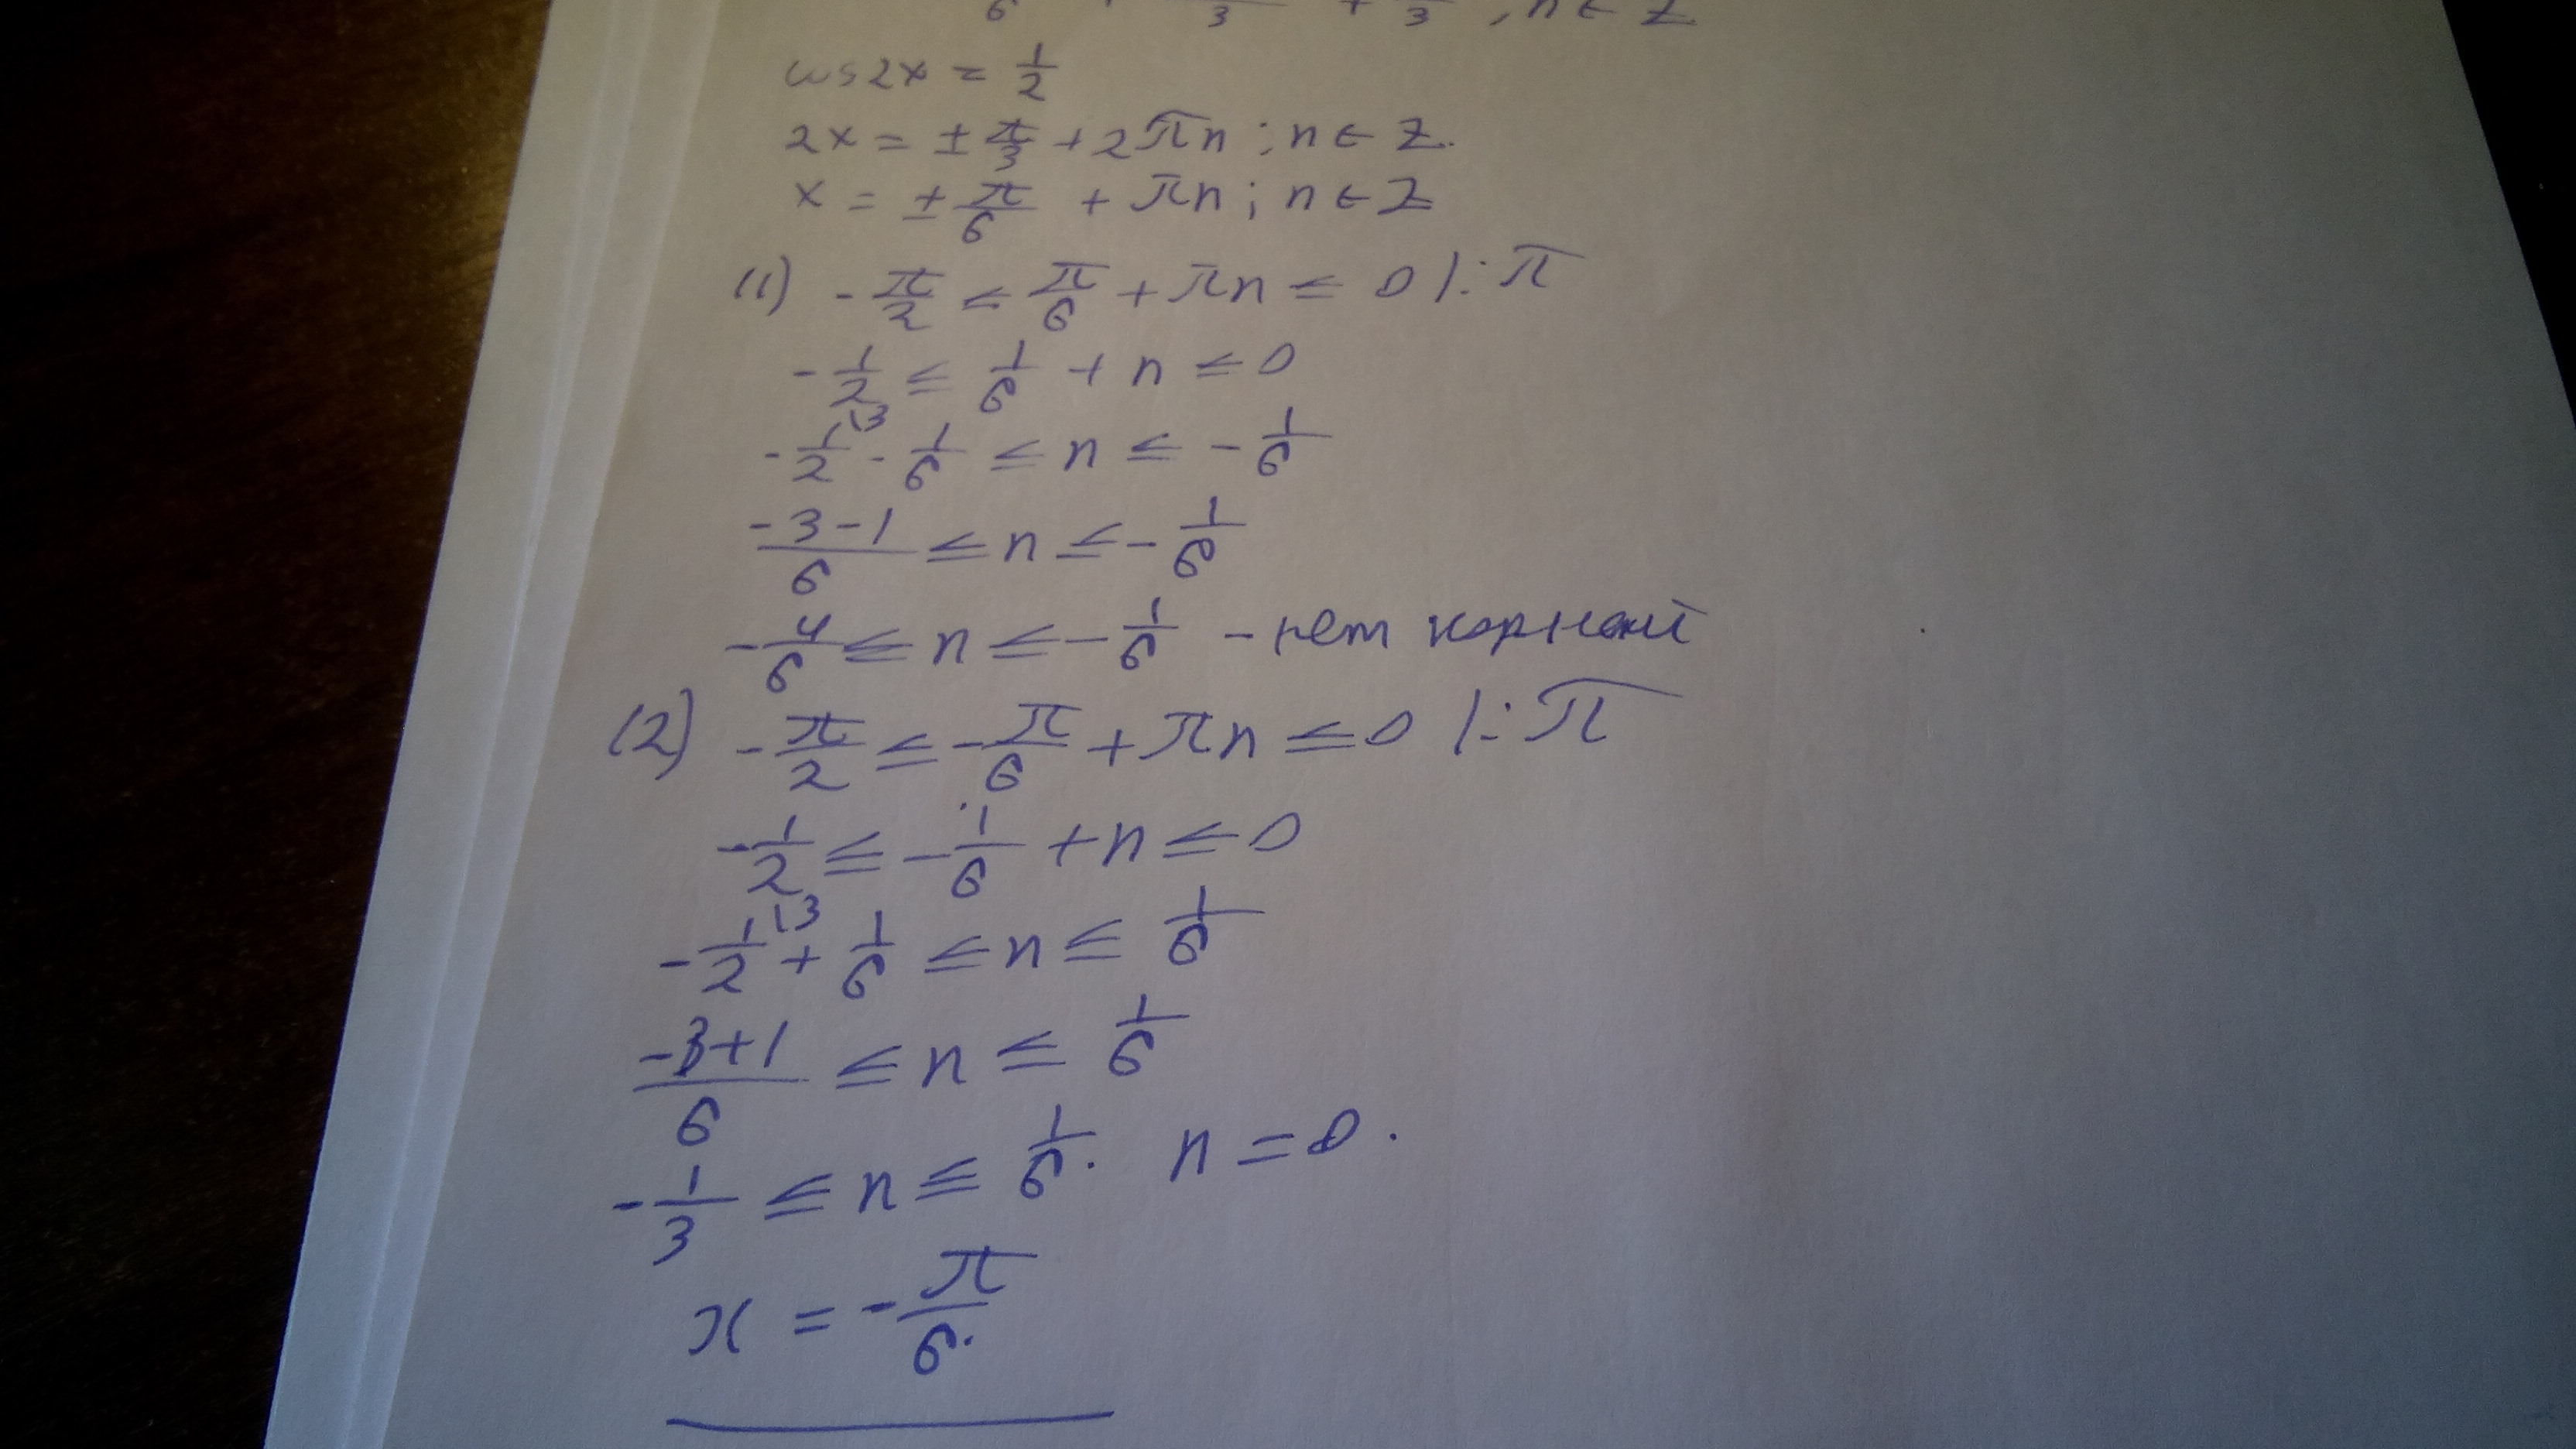 6 3 + 3 , n ∈ Z
cos2x = 1/2
2x = ± π/3 + 2πn ; n ∈ Z.
x = ± π/6 + πn ; n ∈ Z
(1) - π/2 ≤ π/6 + πn ≤ 0 |: π
- 1/2 ≤ 1/6 + n ≤ 0
- 1/2 \3 - 1/6 ≤ n ≤ - 1/6
(-3-1)/6 ≤ n ≤ - 1/6
- 4/6 ≤ n ≤ - 1/6 - нет корней
(2) - π/2 ≤ - π/6 + πn ≤ 0 |: π
- 1/2 ≤ - 1/6 + n ≤ 0
- 1/2 \3 + 1/6 ≤ n ≤ 1/6
(-3+1)/6 ≤ n ≤ 1/6
- 1/3 ≤ n ≤ 1/6. n = 0.
x = - π/6.